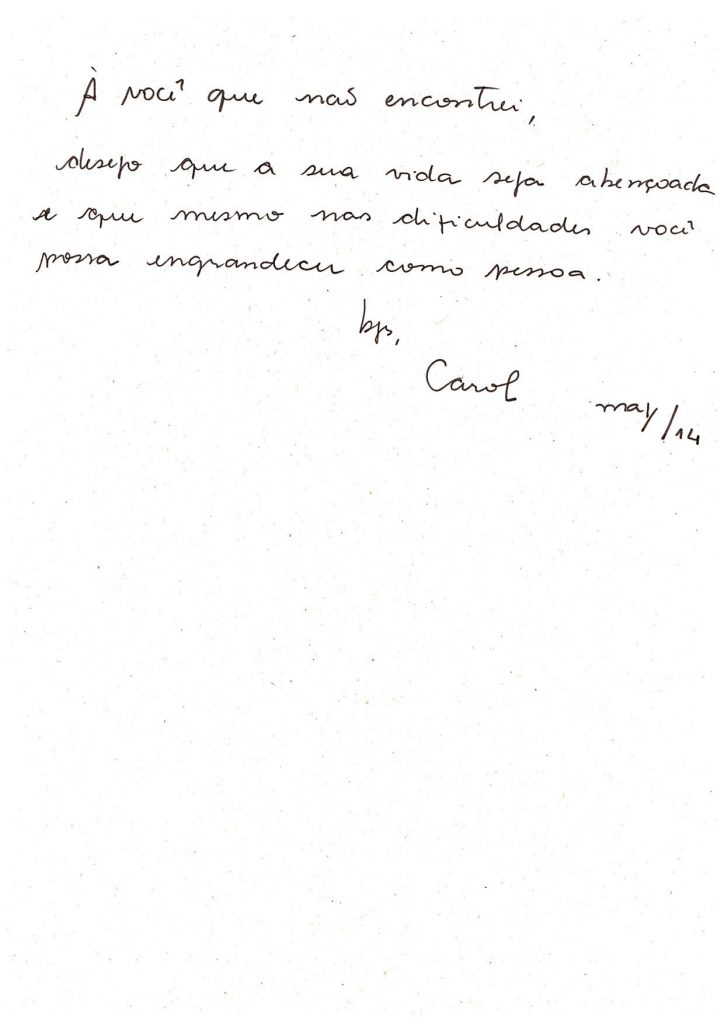 À você que não encontrei,
desejo que a sua vida seja abençoada
e que mesmo nas dificuldades você
possa engrandecer como pessoa.
bjs,
Carol
may/14